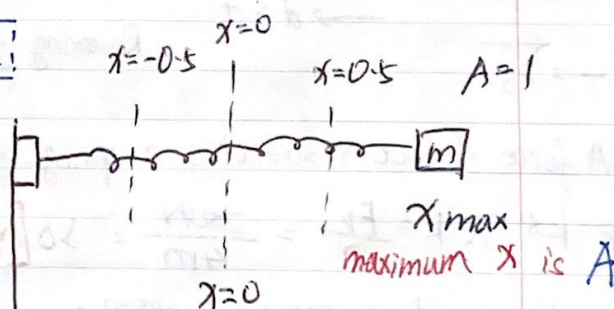 x=0
x=-0.5
x=0.5
A=1
m
xmax
maximum x is A
x=0